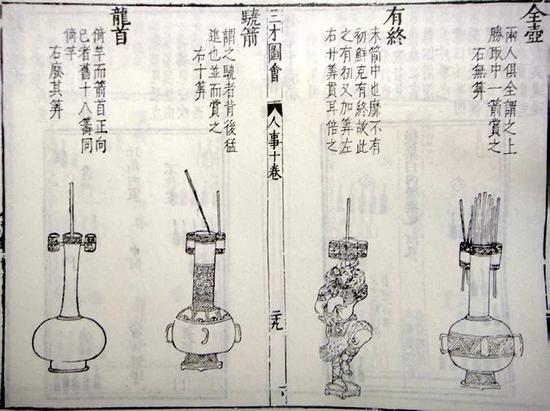 全壺
兩人俱全謂之上
勝取中一箭賞之
右無筭
有終
末箭中也靡不有
初鮮克有終故此
之有初又加筭左
右廾筭貫耳倍之
三才圖會
人事十卷
驍箭
謂之驍者背後猛
進也並而賞之
右十筭
龍首
倚竿而箭首正向
己者舊十八籌同
倚竿
右廢其筭